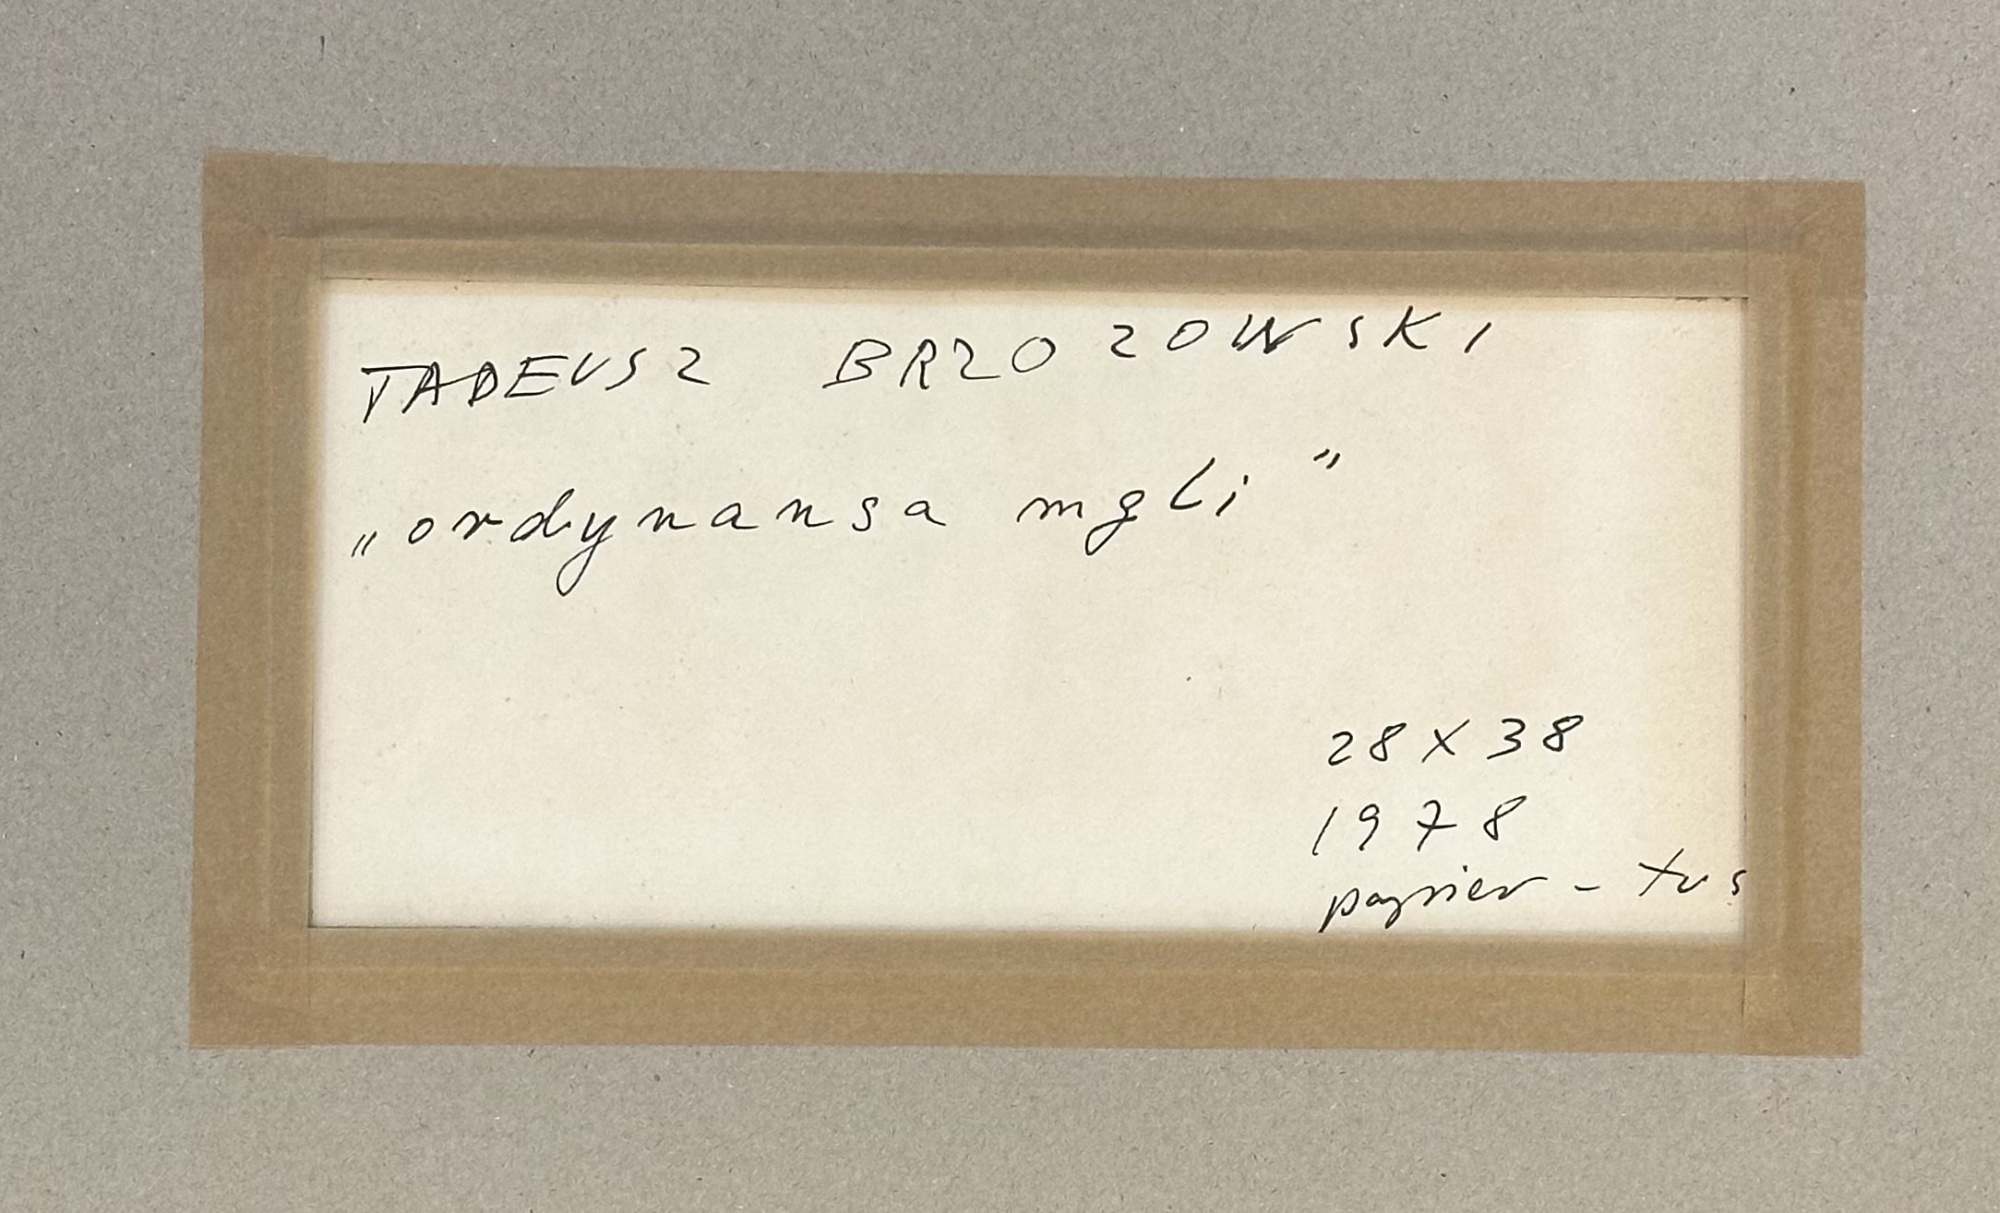 TADEUSZ BRZOZOWSKI
„ordynansa mgli”
28 x 38
1978
papier - tus